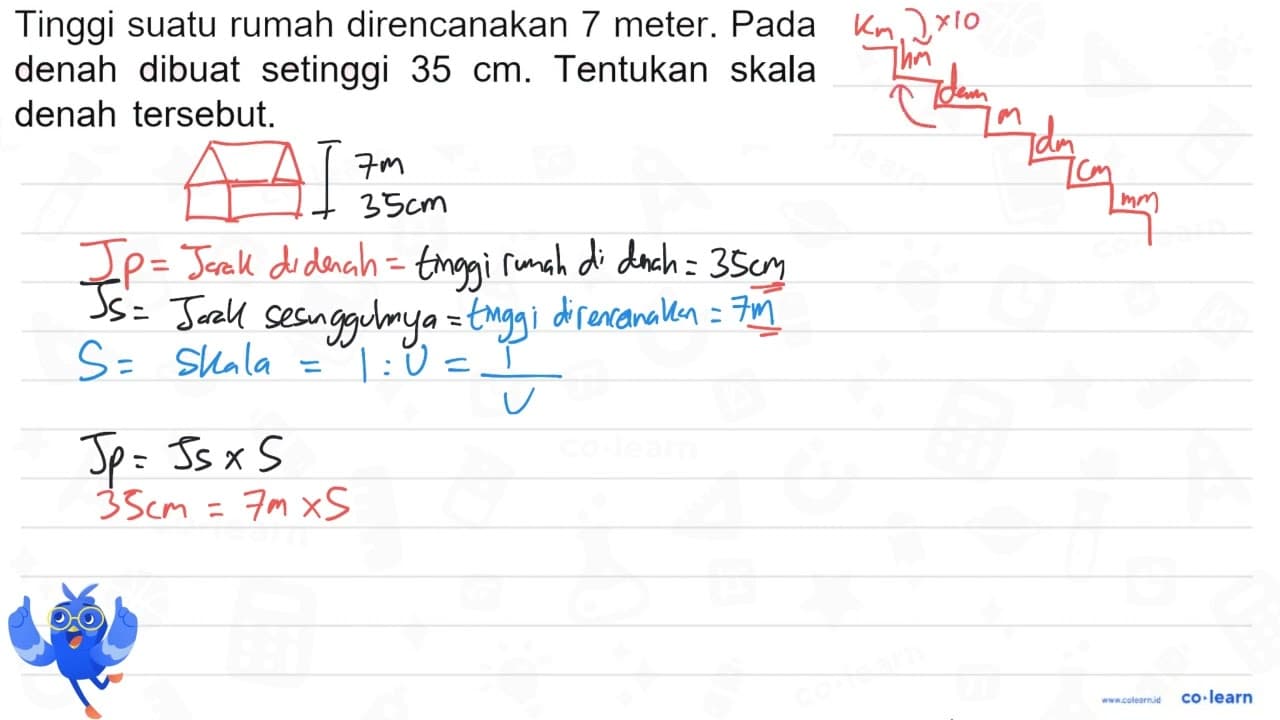 Tinggi suatu rumah direncanakan 7 meter. Pada
denah dibuat setinggi 35 cm. Tentukan skala
denah tersebut.
Km ×10
hm
dam
m
dm
cm
mm
7m
35cm
Jp = Jarak di denah = tinggi rumah di denah = 35cm
Js = Jarak sesungguhnya = tinggi direncanakan = 7m
S = Skala = 1 : U = 1/U
Jp = Js × S
35cm = 7m × S
www.colearn.id co·learn